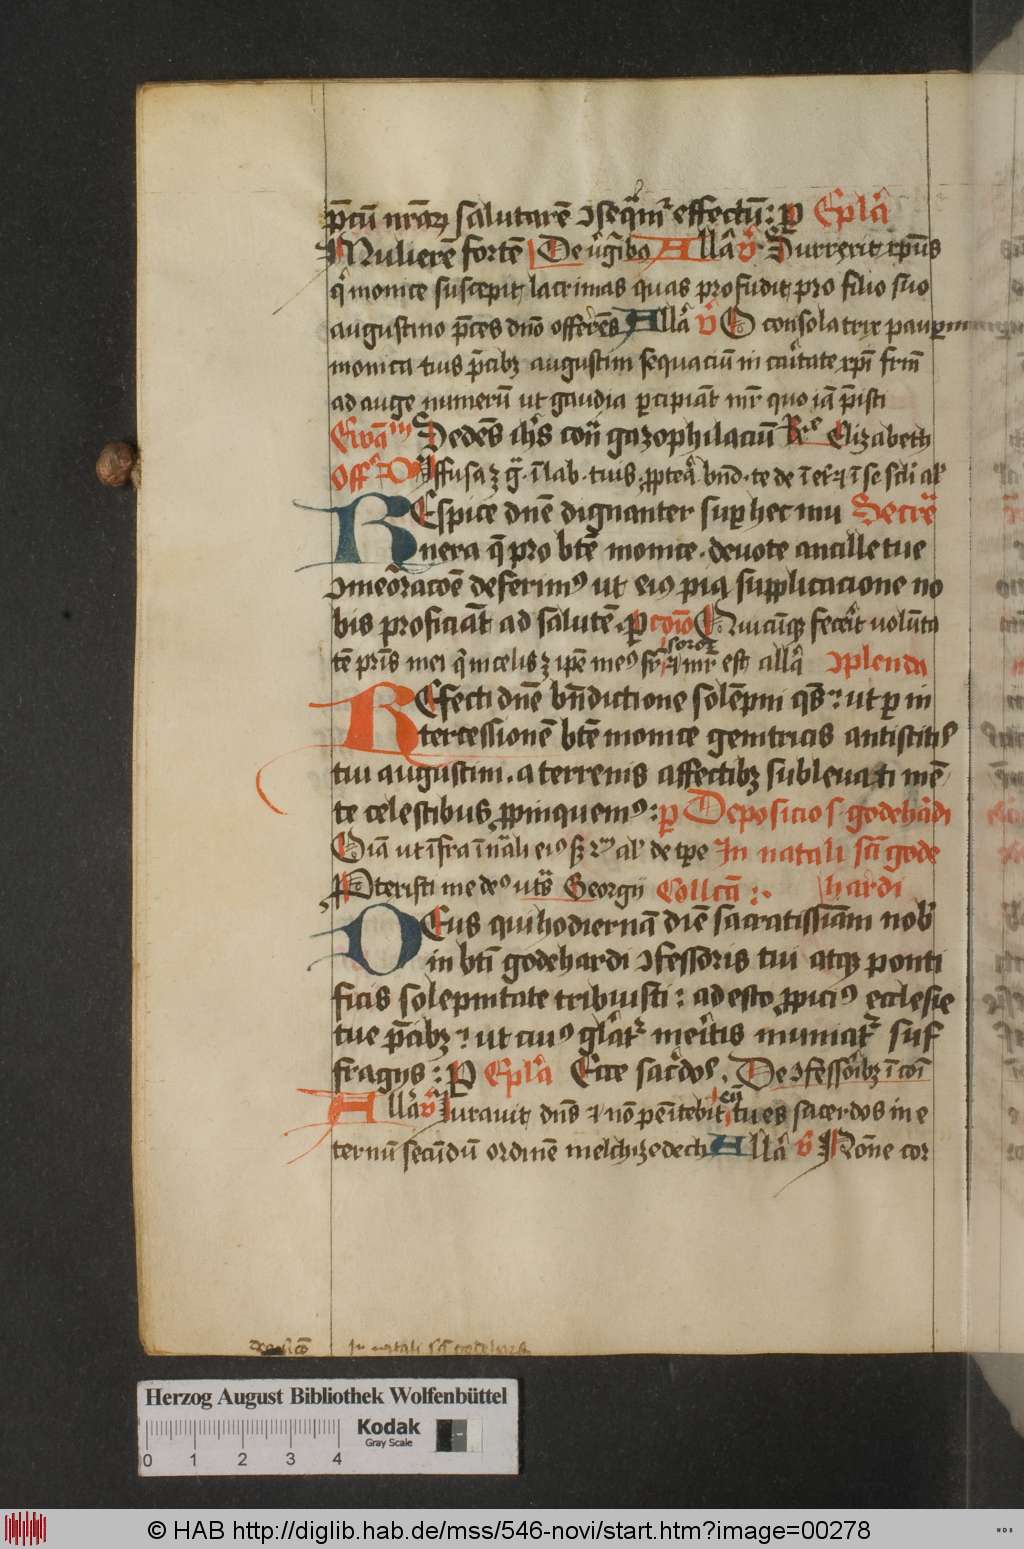 p̄cū nr̄aꝝ salutarē ↄseq̄mʳ effectū: ꝑ Ep̄la
Mulierē fortē De v̄gībꝰ All̄a v̄ Surrexit xp̄us
q̄ monice suscepit lacrimas quas profudit pro filio suo
augustino p̄ces dn̄o offerēs All̄a v̄ O consolatrix pauꝑum
monica tuis p̄cibꝫ augustini sequaciū in caritate xp̄i frm̄
ad auge numerū ut gaudia ꝑcipiāt mr̄ quo iā p̄isti
Ewāᵐ Sedēs ih̄s con̄ gazophilaciū Rᵉ Elizabeth
Off̄ Diffusa ꝫ gr̄ ī lab· tuis ꝓpteā bn̄d· te de ī et̄
REspice dn̄e dignanter suꝑ hec mu Secre
nera q̄ pro bt̄e monice· deuote ancille tue
ↄmeōracōe deferimꝰ ut eiꝰ pia supplicacione no
bis proficiāt ad salutē· ꝑ cōio Quicūqꝫ fecerit volūta
tē pr̄is mei q̄ in celis ꝫ ip̄e meꝰ fr̄ soror ⁊ mr̄ est all̄a ↄplenda
REfecti dn̄e bn̄dictione solēpni qs̄: ut ꝑ in
tercessionē bt̄e monice genitricis antistitis
tui augustini· a terrenis affectibꝫ subleuati mē
te celestibus ꝓpinquemꝰ: ꝑ Deposicio s· godehardi
Oīa ut īfra ī natali eiꝰ al̄ de tꝑe In natali sc̄i gode
Protexisti me deꝰ Georgij Coll̄ca: hardi
DEus qui hodiernā diē sacratissimam nob̄
in bt̄i godehardi ↄfessoris tui atqꝫ ponti
ficis solepnitate tribuisti: adesto ꝓpiciꝰ ecclesie
tue p̄cibꝫ: ut cuiꝰ gl̄iatʳ meritis muniatʳ suf
fragijs: ꝑ Ep̄la Ecce sacerdos· De ↄfessoribꝫ ī cōi
All̄a v̄ Iurauit dn̄s ⁊ nō penitebit eū tu es sacerdos in e
ternū secūdū ordinē melchizedech All̄a v̄ Pone cor
In natali sc̄i godehardi
Herzog August Bibliothek Wolfenbüttel
Kodak
Gray Scale
0 1 2 3 4
© HAB http://diglib.hab.de/mss/546-novi/start.htm?image=00278
HAB